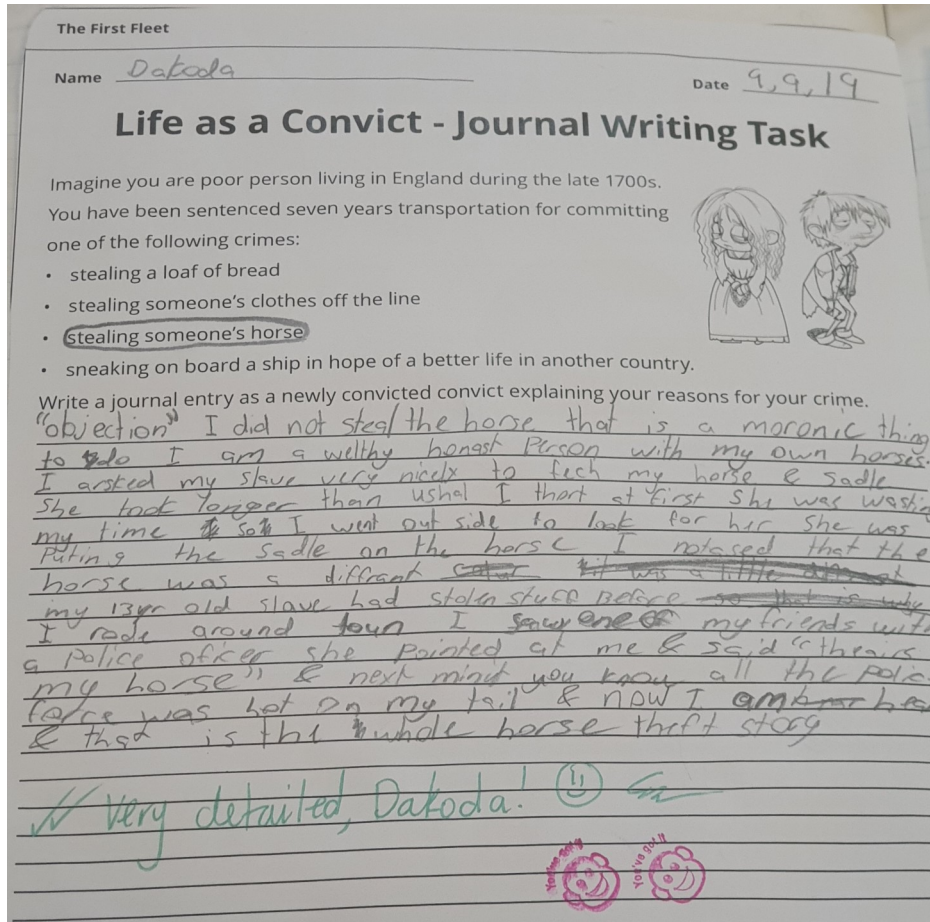 The First Fleet
Name Dakoda
Date 9,9,19
Life as a Convict - Journal Writing Task
Imagine you are poor person living in England during the late 1700s.
You have been sentenced seven years transportation for committing
one of the following crimes:
• stealing a loaf of bread
• stealing someone's clothes off the line
• stealing someone's horse
• sneaking on board a ship in hope of a better life in another country.
Write a journal entry as a newly convicted convict explaining your reasons for your crime.
"objection" I did not steal the horse that is a moronic thing
to do I am a welthy honast Person with my own horses.
I arsked my slave very nicely to fech my horse & sadle
She took longer than ushal I thort at first She was wastin
my time so I went out side to look for her She was
Puting the sadle on the horse I notased that the
horse was a diffrant
my 13yr old slave had stolen stuff Before
I rode around toun I saw one of my friends with
a Police oficer she pointed at me & said "thears
my horse" & next minit you know all the polic
force was hot on my tail & now I am hea
& that is the whole horse theft story
Very detailed, Dakoda!
You've got it
You've got it